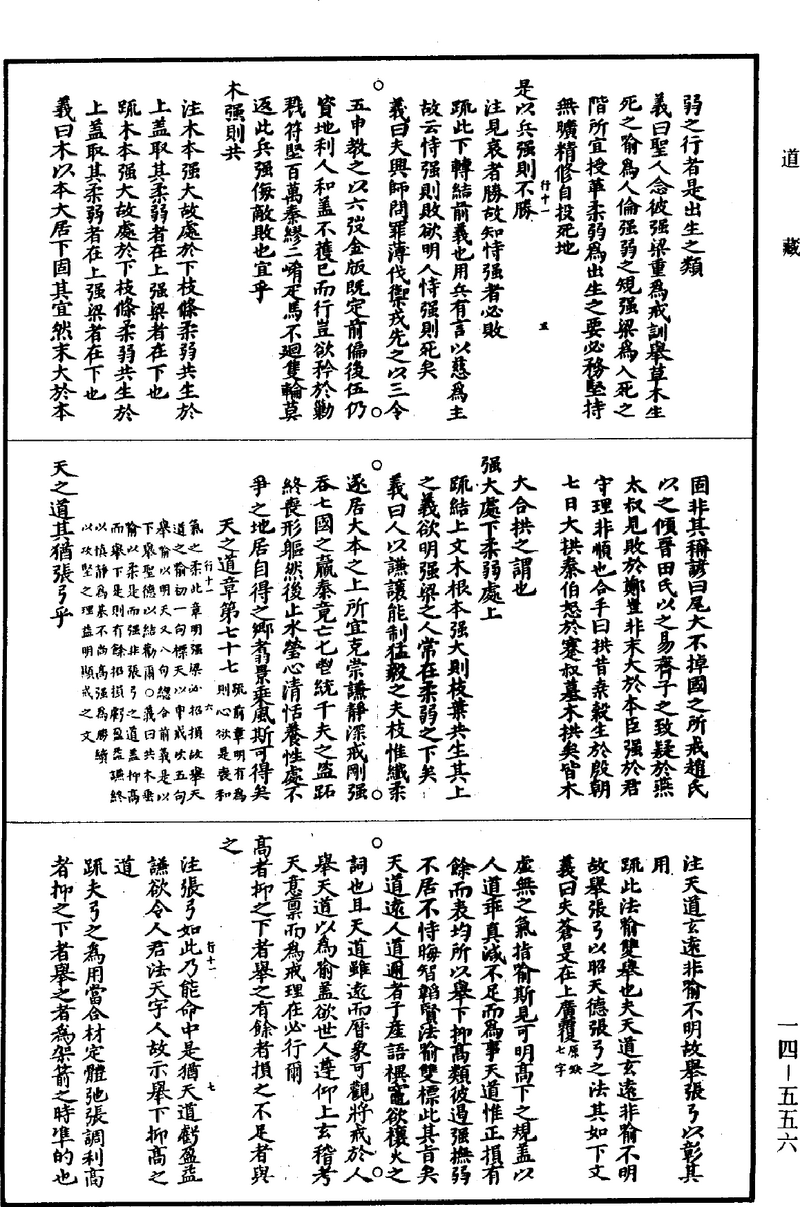 道藏
弱之行者是出生之類
義曰聖人念彼强梁重為戒訓舉草木生
死之喻為人倫强弱之規强梁為入死之
階所宜投革柔弱為出生之要必務堅持
無曠精修自投死地
是以兵强則不勝
行十一
五
注見哀者勝故知恃强者必敗
疏此下轉結前義也用兵有言以慈為主
故云恃强則敗欲明人恃强則死矣
義曰夫興師問罪薄伐禦戎先之以三令
五申教之以六弢金版既定前偏後伍仍
資地利人和蓋不獲已而行豈欲矜於勦
戮符堅百萬秦繆二崤疋馬不迴隻輪莫
返此兵强侮敵敗也宜乎
木强則共
注木本强大故處於下枝條柔弱共生於
上蓋取其柔弱者在上强梁者在下也
疏木本强大故處於下枝條柔弱共生於
上蓋取其柔弱者在上强梁者在下也
義曰木以本大居下固其宜然末大於本
固非其稱諺曰尾大不掉國之所戒趙氏
以之傾晉田氏以之易齊子之致疑於燕
太叔見敗於鄭豈非末大於本臣强於君
守理非順也合手曰拱昔桑穀生於殷朝
七日大拱秦伯怒於蹇叔墓木拱矣皆木
大合拱之謂也
强大處下柔弱處上
疏結上文木根本强大則枝葉共生其上
之義欲明强梁之人常在柔弱之下矣
義曰人以謙讓能制猛毅之夫枝惟纖柔
遂居大本之上所宜克崇謙靜深戒剛强
吞七國之嬴秦竟亡七䣭統千夫之盜跖
終喪形軀然後止水瑩心清恬養性處不
爭之地居自得之鄉翥景乘風斯可得矣
天之道章第七十七
疏前章明有為
則心欲是喪和
氣之柔此章明强梁必招損故舉天
行十一
六
道之喻初一句標天以申戒次五句
舉喻以明天又八句總合前義是以
下舉聖德以結勸爾○義曰共木垂
喻以柔是而强非張弓之道蓋抑高
而舉下是則有餘招損虧盈益謙終
以慎靜為基不尚高强為勝猗
以攻堅之理益明順戒之文
天之道其猶張弓乎
注天道玄遠非喻不明故舉張弓以彰其
用
疏此法喻雙舉也夫天道玄遠非喻不明
故舉張弓以昭天德張弓之法其如下文
義曰夫蒼是在上廣覆
原缺
七字
虛無之氣指喻斯見可明高下之規蓋以
人道乖真減不足而為事天道惟正損有
餘而表均所以舉下抑高類彼過强撫弱
不居不恃晦智韜賢法喻雙標此其旨矣
天道遠人道邇者子產語裨竈欲禳火之
詞也且天道雖遠而曆象可觀將戒於人
舉天道以為喻蓋欲世人遵仰上玄稽考
天意稟而為戒理在必行爾
高者抑之下者舉之有餘者損之不足者與
之
行十一
七
注張弓如此乃能命中是猶天道虧盈益
謙欲令人君法天字人故示舉下抑高之
道
疏夫弓之為用當合材定體弛張調利高
者抑之下者舉之者為架箭之時準的也
一四—五五六